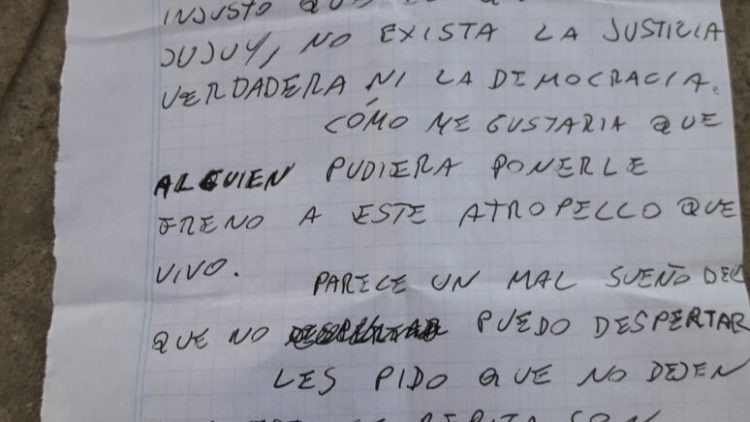 INJUSTO QUE
JUJUY, NO EXISTA LA JUSTICIA
VERDADERA NI LA DEMOCRACIA.
CÓMO ME GUSTARIA QUE
ALGUIEN PUDIERA PONERLE
FRENO A ESTE ATROPELLO QUE
VIVO.
PARECE UN MAL SUEÑO DEL
QUE NO PUEDO DESPERTAR
LES PIDO QUE NO DEJEN
SE REPITA CON